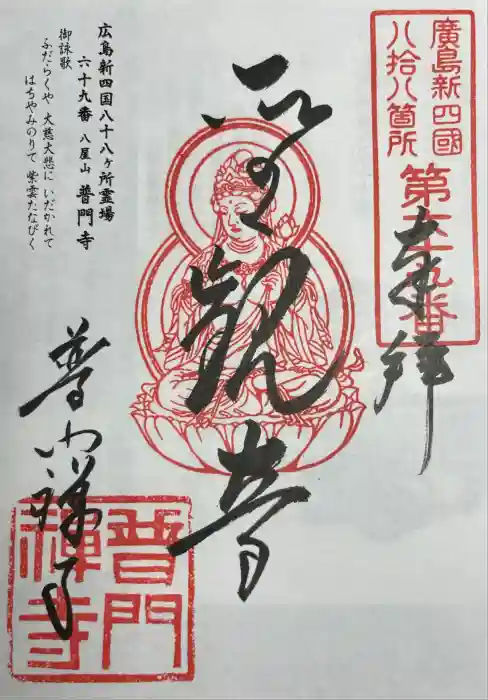 廣島新四國
八拾八箇所 第六十九番
奉拝
聖観音
広島新四国八十八ヶ所霊場
六十九番 八屋山 普門寺
御詠歌
ふだらくや 大慈大悲に いだかれて
はちやみのりて 紫雲たなびく
普門禅寺
普門
禅寺